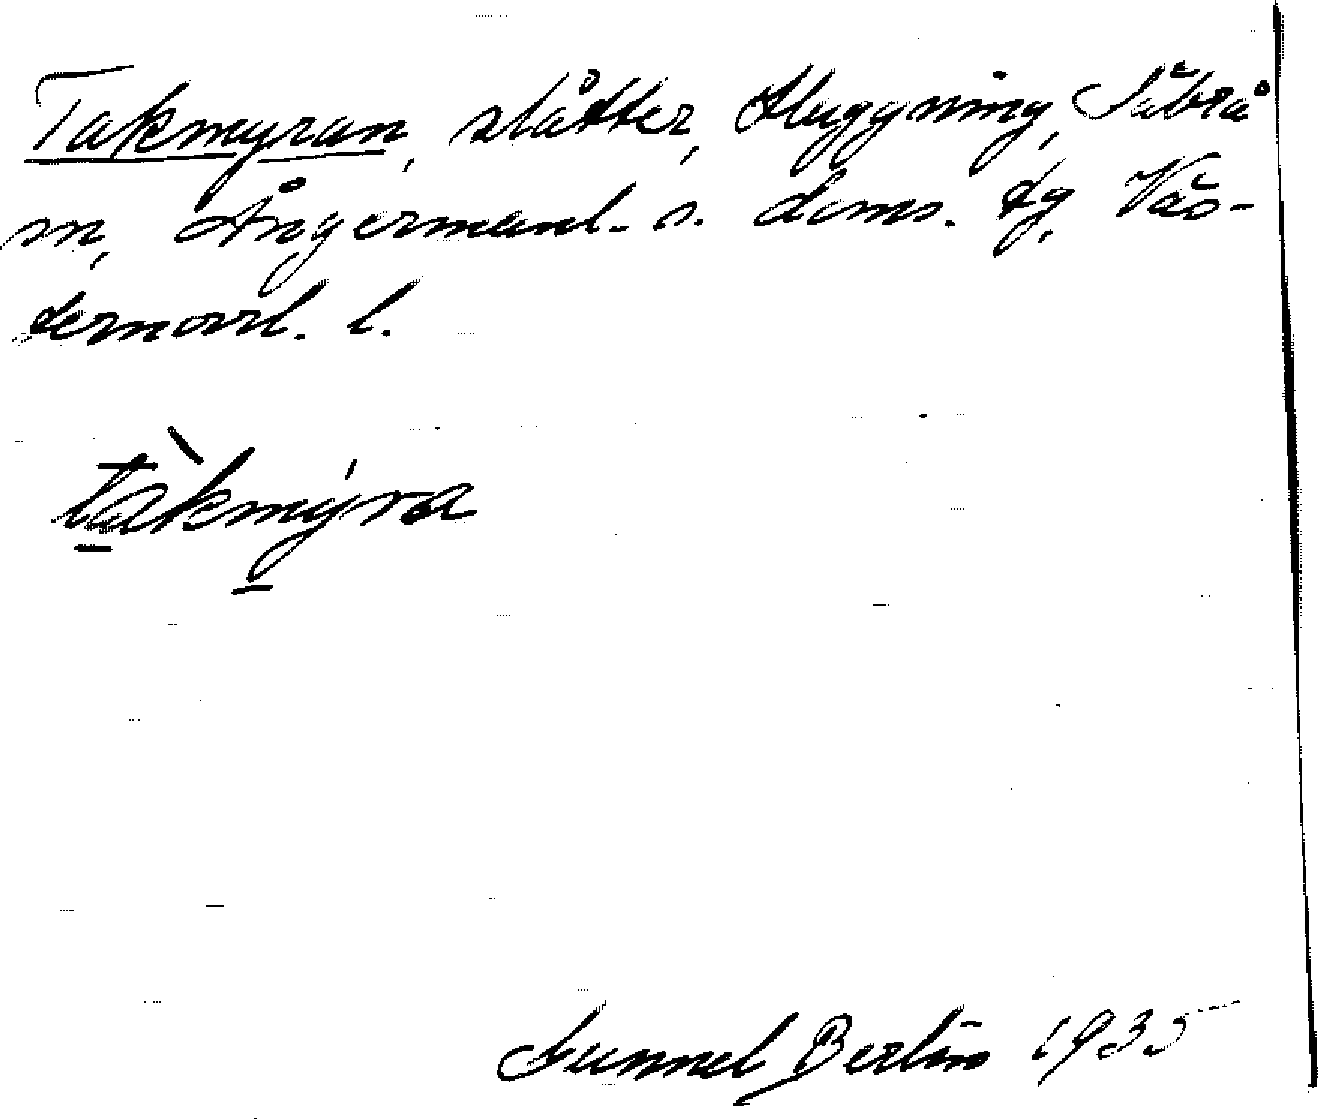 Takmyran, slåtter, Huggning, Säbrå
sn, Ångermanl. s. doms. tg, Väs-
ternorrl. l.
tàkmýra
Gunnel Berlin 1935